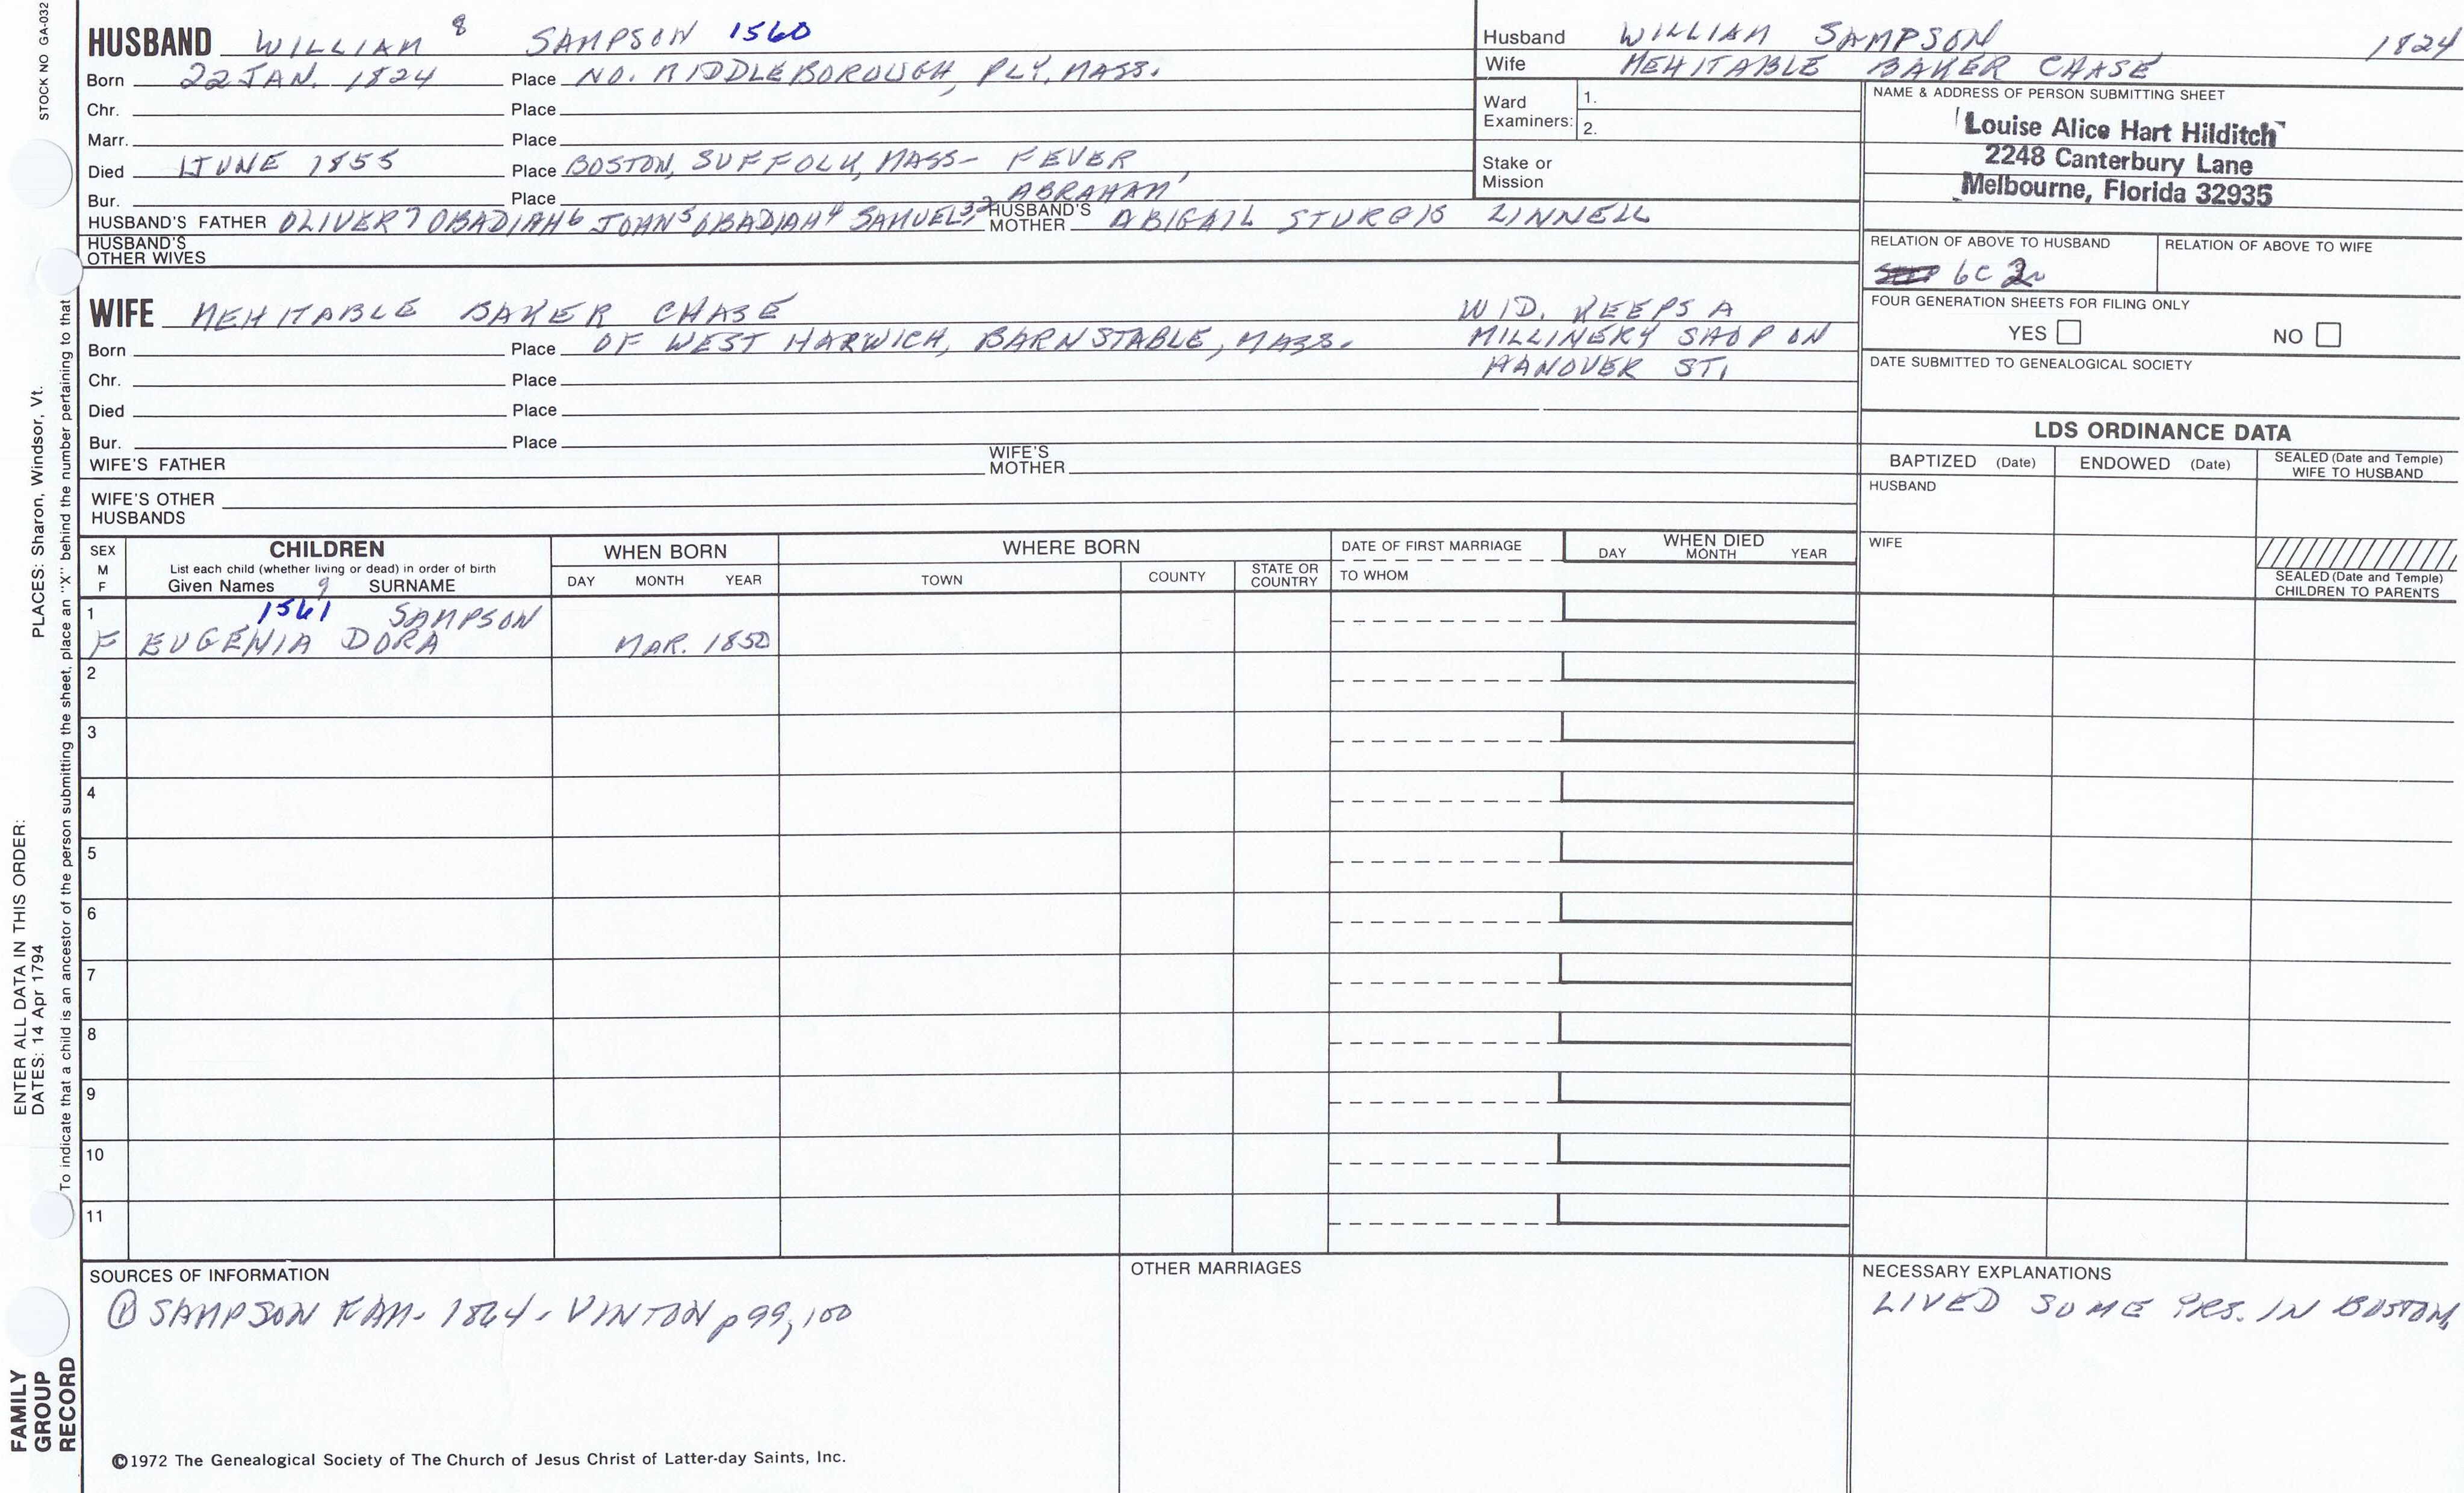 STOCK NO GA-032
PLACES: Sharon, Windsor, Vt.
ENTER ALL DATA IN THIS ORDER:
DATES: 14 Apr 1794
To indicate that a child is an ancestor of the person submitting the sheet, place an "X" behind the number pertaining to that
FAMILY
GROUP
RECORD
HUSBAND WILLIAM 8 SAMPSON 1560
Born 22 JAN. 1824 Place NO. MIDDLEBOROUGH, PLY, MASS.
Chr. Place
Marr. Place
Died 1 JUNE 1855 Place BOSTON, SUFFOLK, MASS - FEVER
Bur. Place ABRAHAM'
HUSBAND'S FATHER OLIVER 7 OBADIAH 6 JOHN 5 OBADIAH 4 SAMUEL 3, 2 HUSBAND'S MOTHER ABIGAIL STURGIS LINNELL
HUSBAND'S
OTHER WIVES
WIFE MEHITABLE BAKER CHASE WID. KEEPS A
Born Place OF WEST HARWICH, BARNSTABLE, MASS. MILLINERY SHOP ON
Chr. Place HANOVER ST.
Died Place
Bur. Place
WIFE'S FATHER WIFE'S MOTHER
WIFE'S OTHER
HUSBANDS
Husband WILLIAM SAMPSON 1824
Wife MEHITABLE BAKER CHASE
Ward
Examiners:
1.
2.
Stake or
Mission
NAME & ADDRESS OF PERSON SUBMITTING SHEET
Louise Alice Hart Hilditch
2248 Canterbury Lane
Melbourne, Florida 32935
RELATION OF ABOVE TO HUSBAND RELATION OF ABOVE TO WIFE
6C
FOUR GENERATION SHEETS FOR FILING ONLY
YES NO
DATE SUBMITTED TO GENEALOGICAL SOCIETY
LDS ORDINANCE DATA
BAPTIZED (Date) ENDOWED (Date) SEALED (Date and Temple) WIFE TO HUSBAND
HUSBAND
WIFE
SEALED (Date and Temple)
CHILDREN TO PARENTS
SEX
M
F
CHILDREN
List each child (whether living or dead) in order of birth
Given Names 9 SURNAME
WHEN BORN
DAY MONTH YEAR
WHERE BORN
TOWN COUNTY STATE OR COUNTRY
DATE OF FIRST MARRIAGE
TO WHOM
WHEN DIED
DAY MONTH YEAR
1 1561 SAMPSON
F EUGENIA DORA MAR. 1850
2
3
4
5
6
7
8
9
10
11
SOURCES OF INFORMATION
SAMPSON FAM - 1864 - VINTON p 99, 100
OTHER MARRIAGES
NECESSARY EXPLANATIONS
LIVED SOME YRS. IN BOSTON,
©1972 The Genealogical Society of The Church of Jesus Christ of Latter-day Saints, Inc.